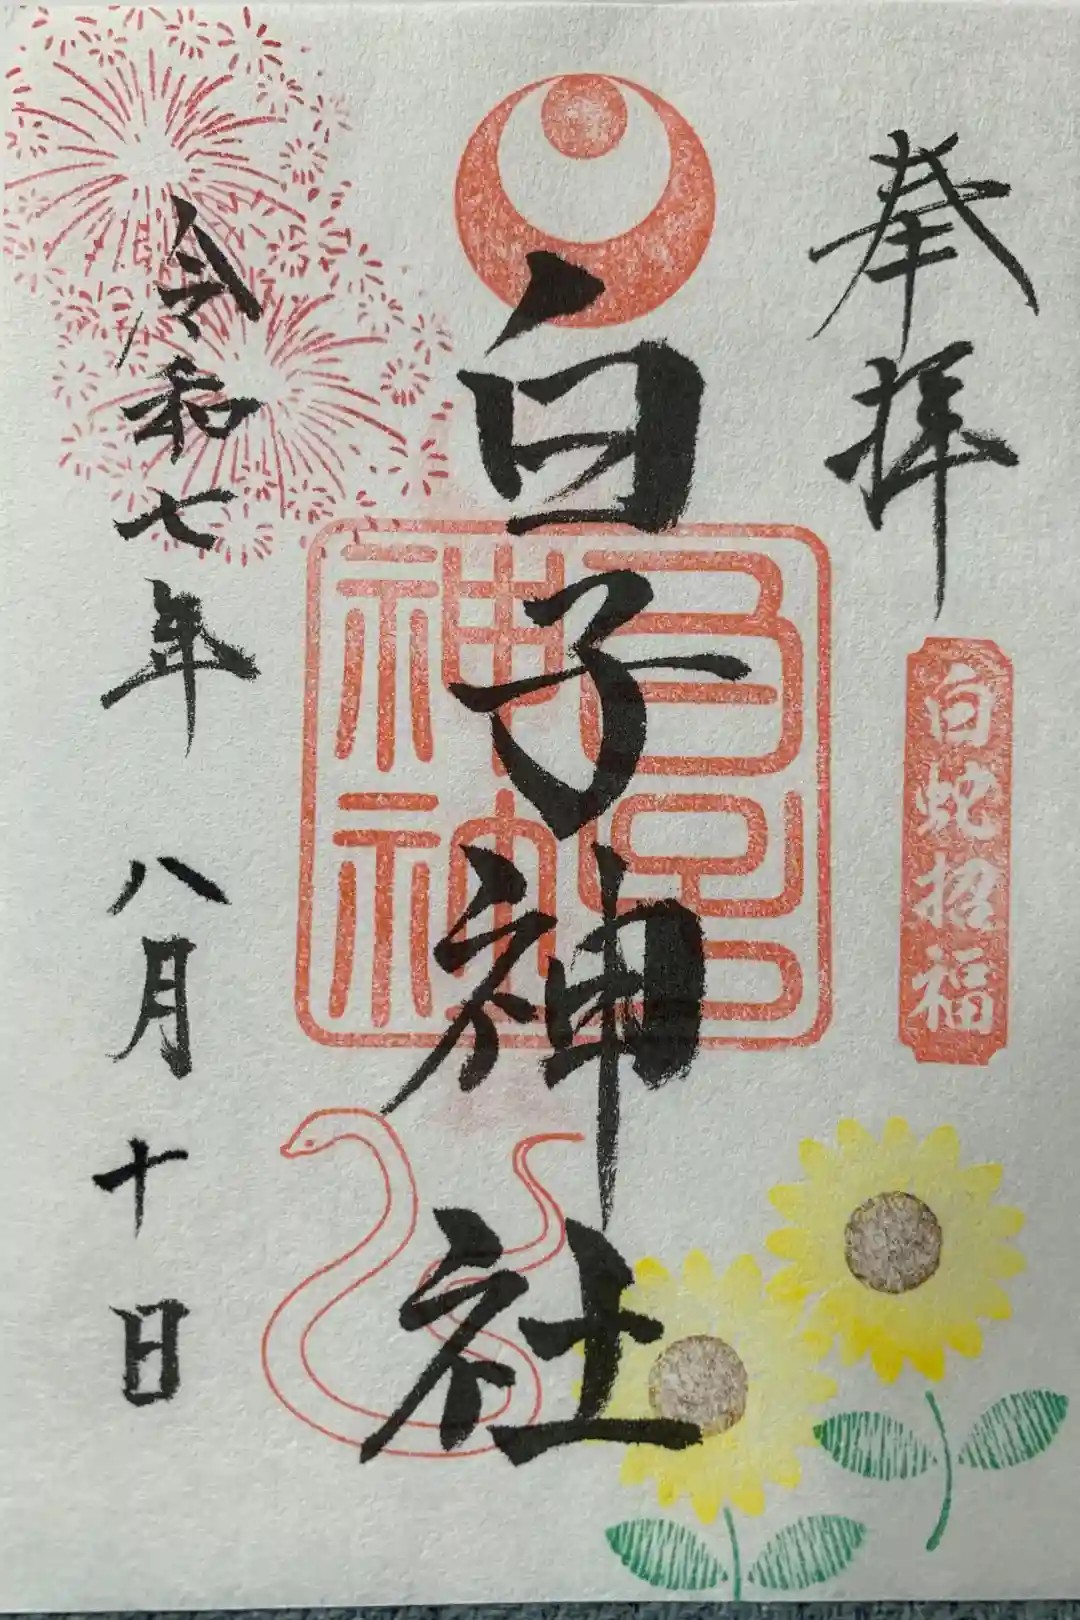 奉拝
白蛇招福
白子神社
令和七年 八月十日